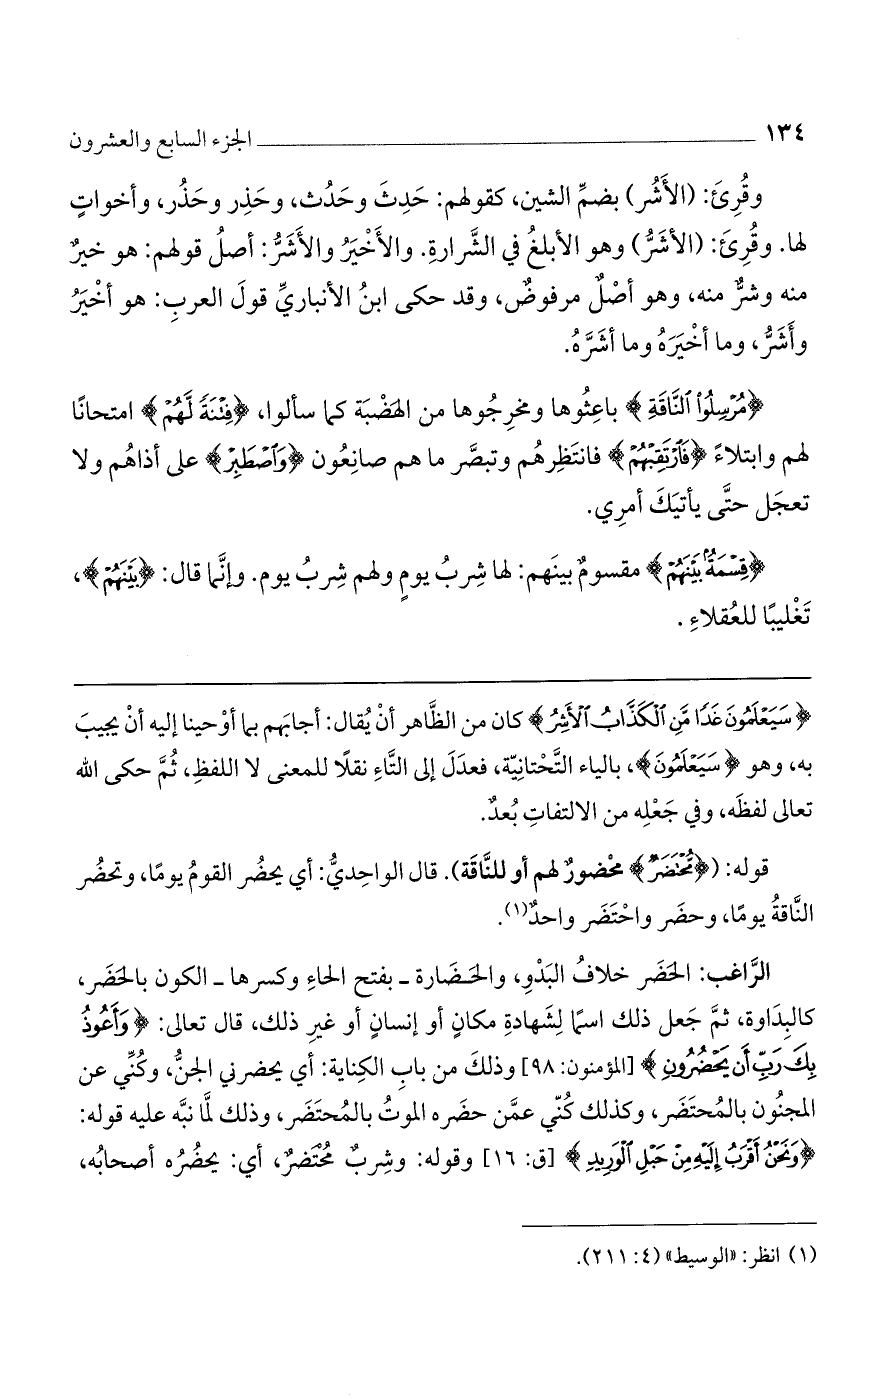 ١٣٤ الجزء السابع والعشرون
وقُرِئَ: (الأَشُر) بضمِّ الشين، كقولهم: حَدِثَ وحَدُث، وحَذِر وحَذُر، وأخواتٍ
لها. وقُرِئَ: (الأشَرُّ) وهو الأبلغُ في الشَّرارةِ. والأَخْيَرُ والأَشَرُّ: أصلُ قولهم: هو خيرٌ
منه وشرٌّ منه، وهو أصْلٌ مرفوضٌ، وقد حكى ابنُ الأنباريِّ قولَ العربِ: هو أخْيَرُ
وأَشَرُّ، وما أخْيَرَهُ وما أشَرَّهُ.
﴿مُرْسِلُوا۟ ٱلنَّاقَةِ﴾ باعِثُوها ومخرِجُوها من الهَضْبَة كما سألوا، ﴿فِتْنَةً لَّهُمْ﴾ امتحانًا
لهم وابتلاءً ﴿فَٱرْتَقِبْهُمْ﴾ فانتَظِرهُم وتبصَّر ما هم صانِعُون ﴿وَٱصْطَبِرْ﴾ على أذاهُم ولا
تعجَل حتَّى يأتيَكَ أمرِي.
﴿قِسْمَةٌۢ بَيْنَهُمْ﴾ مقسومٌ بينَهم: لها شِربُ يومٍ ولهم شِربُ يوم. وإنَّما قال: ﴿بَيْنَهُمْ﴾،
تَغْليبًا للعُقلاءِ.
﴿سَيَعْلَمُونَ غَدًا مَّنِ ٱلْكَذَّابُ ٱلْأَشِرُ﴾ كان من الظَّاهر أنْ يُقال: أجابَهم بما أوْحينا إليه أنْ يجيبَ
به، وهو ﴿سَيَعْلَمُونَ﴾، بالياء التَّحْتانيّة، فعدَلَ إلى التَّاءِ نقلًا للمعنى لا اللفظِ، ثُمَّ حكى الله
تعالى لفظَه، وفي جَعْلِه من الالتفاتِ بُعدٌ.
قوله: (﴿مُّحْتَضَرٌ﴾ محْضورٌ لهم أو للنَّاقَة). قال الواحِديُّ: أي يحضُر القومُ يومًا، وتحضُر
النَّاقةُ يومًا، وحضَر واحْتَضَر واحدٌ(١).
الرَّاغب: الحَضَر خلافُ البَدْوِ، والحَضارة ـ بفتح الحاءِ وكسرها ـ الكون بالحَضَر،
كالبِدَاوة، ثمَّ جَعل ذلك اسمًا لِشَهادةِ مكانٍ أو إنسانٍ أو غيرِ ذلك، قال تعالى: ﴿وَأَعُوذُ
بِكَ رَبِّ أَن يَحْضُرُونِ﴾ [المؤمنون: ٩٨] وذلكَ من بابِ الكِناية: أي يحضرني الجنُّ، وكُنِّي عن
المجنُون بالمُحتَضَر، وكذلك كُنّي عمَّن حضره الموتُ بالمُحتَضَر، وذلك لمَّا نبَّه عليه قوله:
﴿وَنَحْنُ أَقْرَبُ إِلَيْهِ مِنْ حَبْلِ ٱلْوَرِيدِ﴾ [ق: ١٦] وقوله: وشِربٌ مُحْتَضرٌ، أي: يحضُرُه أصحابُه،
(١) انظر: «الوسيط» (٤: ٢١١).